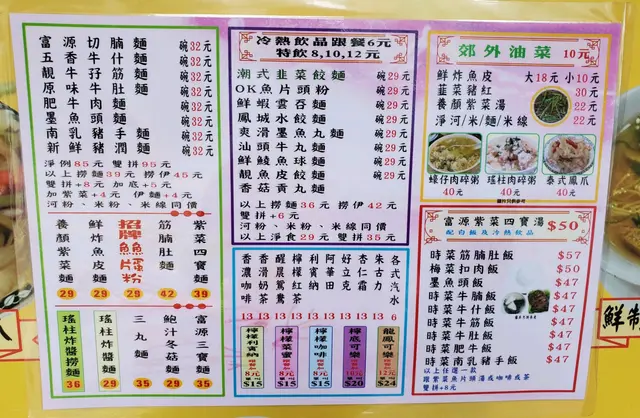 富源切腩麵 碗32元
五香牛什麵 碗32元
靚仔牛筋麵 碗32元
原味牛肚麵 碗32元
肥牛肉麵 碗32元
墨魚頭麵 碗32元
南乳豬手麵 碗32元
新鮮豬潤麵 碗32元
淨例85元 雙拼95元
以上撈麵39元 撈伊45元
雙拼+8元 加底+5元
加紫菜+4元 伊麵+4元
河粉、米粉、米線同價
養顏紫菜麵
29
鮮炸魚皮麵
29
招牌魚片頭粉
29
筋腩肚麵
42
紫菜四寶麵
39
瑤柱炸醬撈麵
36
瑤柱炸醬麵
29
三丸麵
35
鮑汁冬菇麵
29
富源三寶麵
35
冷熱飲品跟餐6元
特飲8,10,12元
潮式韭菜餃麵 碗29元
OK魚片頭粉 碗29元
鮮蝦雲吞麵 碗29元
鳳城水餃麵 碗29元
爽滑墨魚丸麵 碗29元
汕頭牛丸麵 碗29元
鮮鯪魚球麵 碗29元
靚魚皮餃麵 碗29元
香菇貢丸麵 碗29元
以上撈麵36元 撈伊42元
雙拼+6元
河粉、米粉、米線同價
以上淨食29元 雙拼35元
香濃咖啡
13
香滑奶茶
13
醒晨鴛鴦
13
檸檬紅茶
13
檸檬利賓納
13
阿華田
13
好立克
13
杏仁霜
13
朱古力
13
各式汽水
6
檸檬利賓納
8元
單叫
$15
檸檬菜蜜
8元
單叫
$15
檸檬咖啡
8元
單叫
$15
檸底可樂
10元
單叫
$20
龍鳳可樂
12元
單叫
$24
郊外油菜 10元
鮮炸魚皮 大18元 小10元
韮菜豬紅 30元
養顏紫菜湯 22元
淨河/米/麵/米線 22元
蠔仔肉碎粥
40元
瑤柱肉碎粥
40元
泰式鳳爪
40元
圖片只供參考
富源紫菜四寶湯 $50
配白飯及冷熱飲品
時菜筋腩肚飯 $57
梅菜扣肉飯 $50
墨魚頭飯 $47
時菜牛腩飯 $47
時菜牛什飯 $47
時菜牛筋飯 $47
時菜牛肚飯 $47
時菜肥牛飯 $47
時菜南乳豬手飯 $47
以上任選一款
跟紫菜魚片頭湯或咖啡或茶
雙拼+8元
鮮制